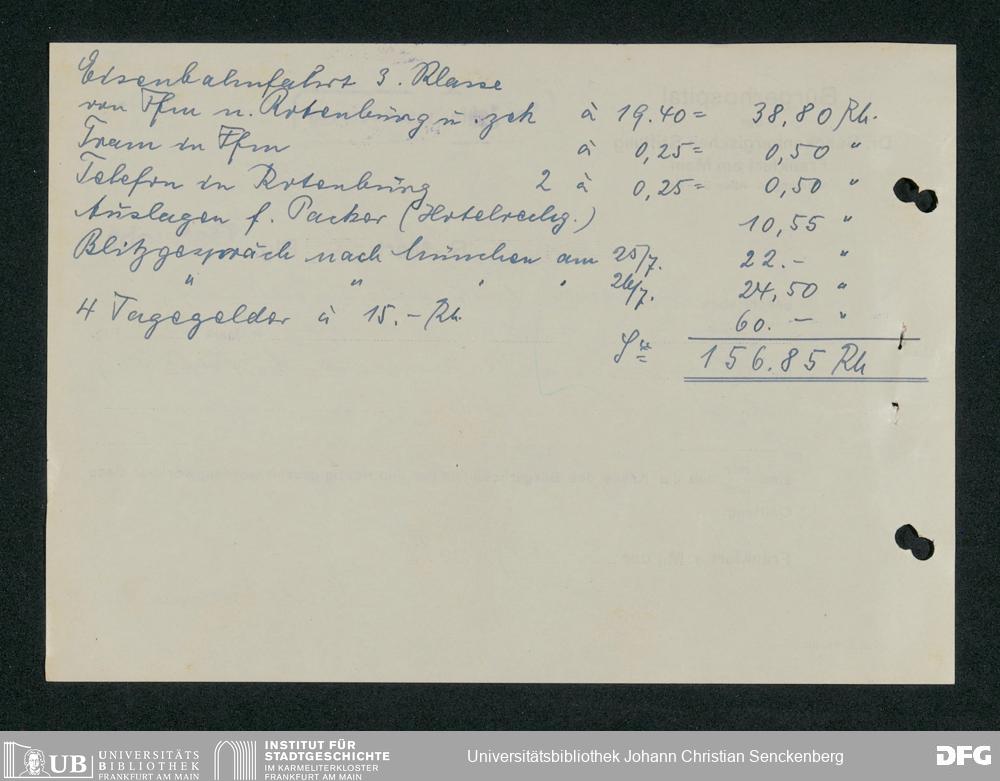 Eisenbahnfahrt 3. Klasse
von Ffm n. Rotenburg u. zck à 19.40 = 38,80 Rh.
Tram in Ffm à 0,25 = 0,50 "
Telefon in Rotenburg 2 à 0,25 = 0,50 "
Auslagen f. Packer (Hotelrechg.) 10,55 "
Blitzgespräch nach München am 25/7. 22.- "
" " " " 26/7. 24,50 "
4 Tagegelder à 15.- Rh. 60.- "
156.85 Rh
UB UNIVERSITÄTS BIBLIOTHEK FRANKFURT AM MAIN
INSTITUT FÜR STADTGESCHICHTE IM KARMELITERKLOSTER FRANKFURT AM MAIN
Universitätsbibliothek Johann Christian Senckenberg
DFG